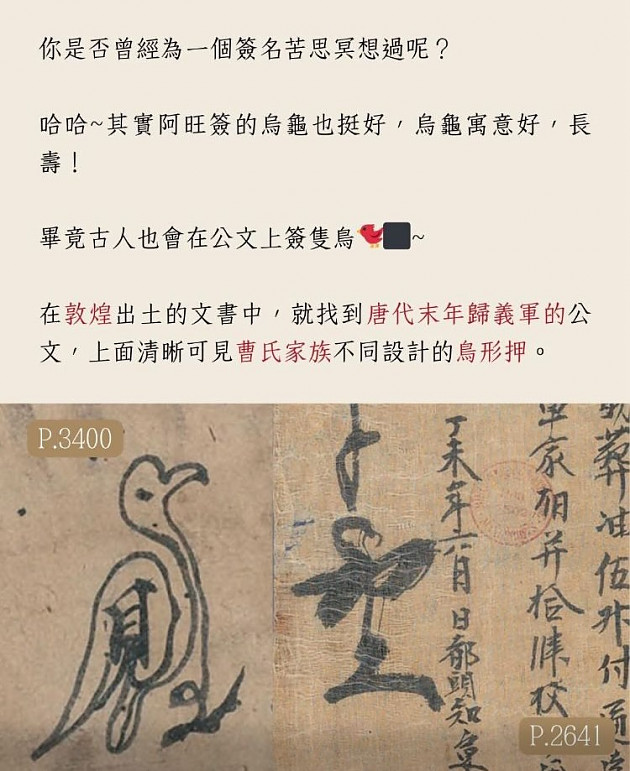 你是否曾經為一個簽名苦思冥想過呢？
哈哈~其實阿旺簽的烏龜也挺好，烏龜寓意好，長
壽！
畢竟古人也會在公文上簽隻鳥~
在敦煌出土的文書中，就找到唐代末年歸義軍的公
文，上面清晰可見曹氏家族不同設計的鳥形押。
P.3400
葬油伍升付
家用并拾捌
丁未年六月 日都頭知
P.2641